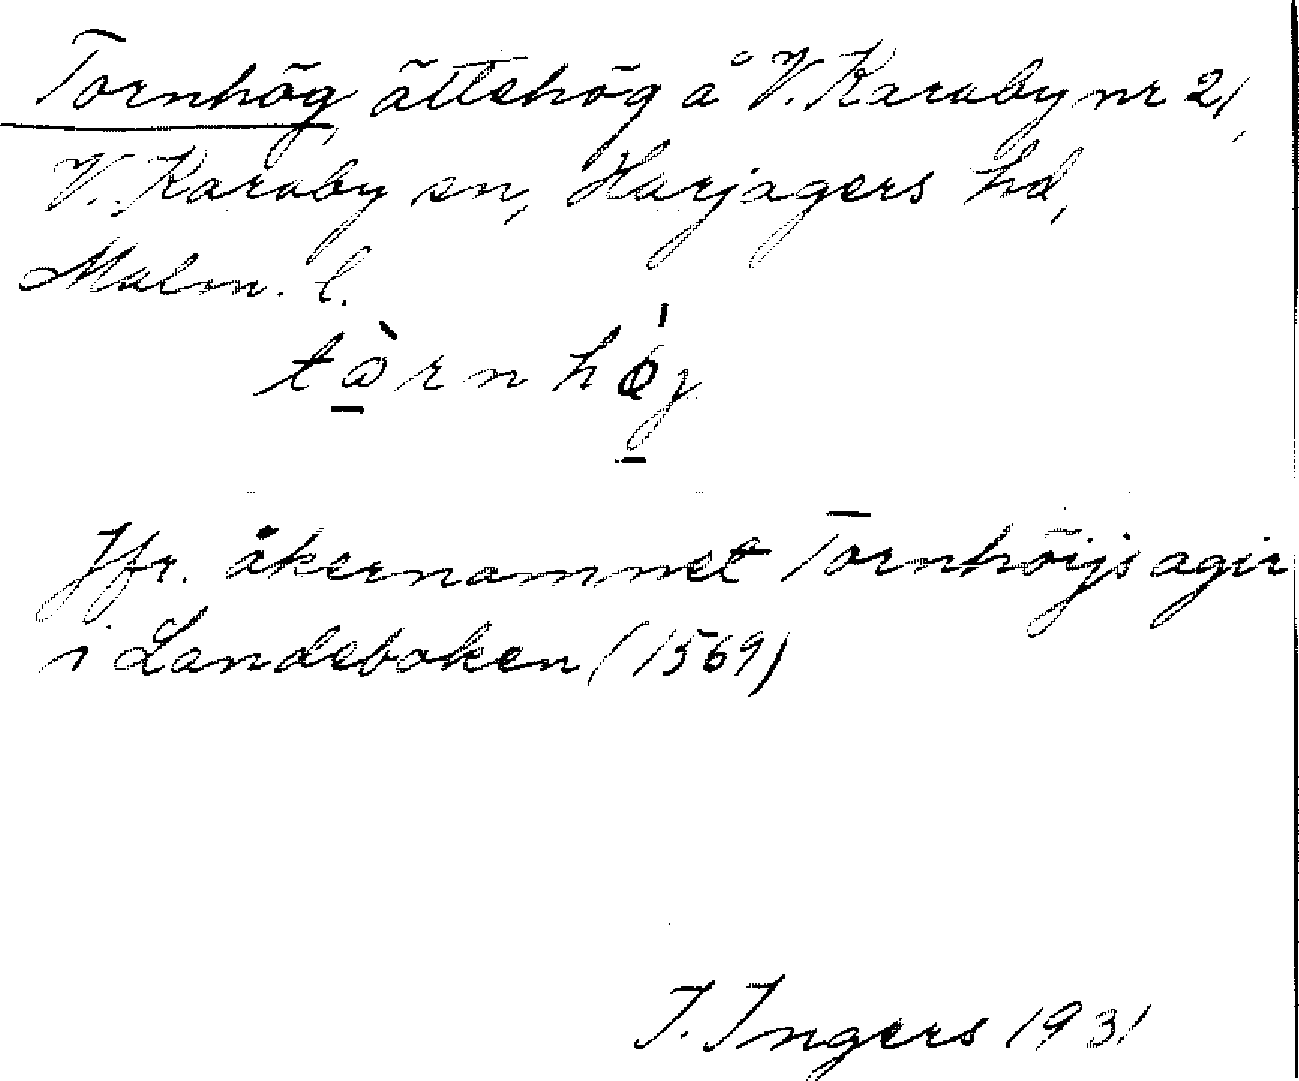 Tornhög, ättehög å V. Karaby nr 21,
V. Karaby sn, Harjagers hd,
Malm. l.
tòrnhǿj
Jfr. åkernamnet Tornhöijs agir
i Landeboken (1569)
I. Ingers 1931